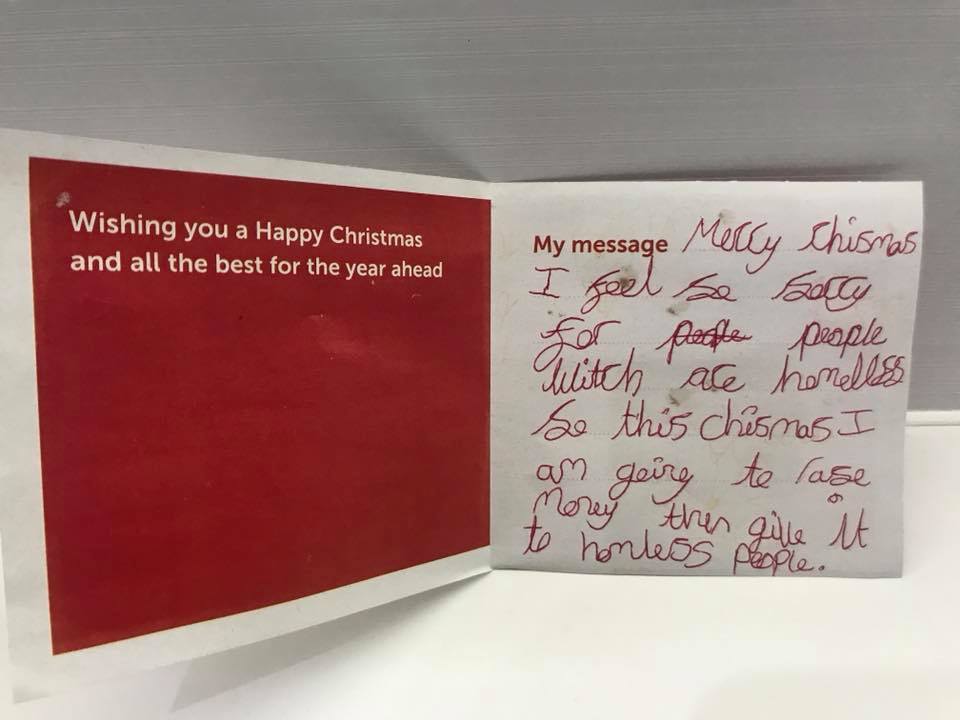 Wishing you a Happy Christmas
and all the best for the year ahead
My message Merry Chismas
I feel so sorry
for people people
Witch are homelless
So this Chismas I
am going to rase
Money then give it
to homless people.